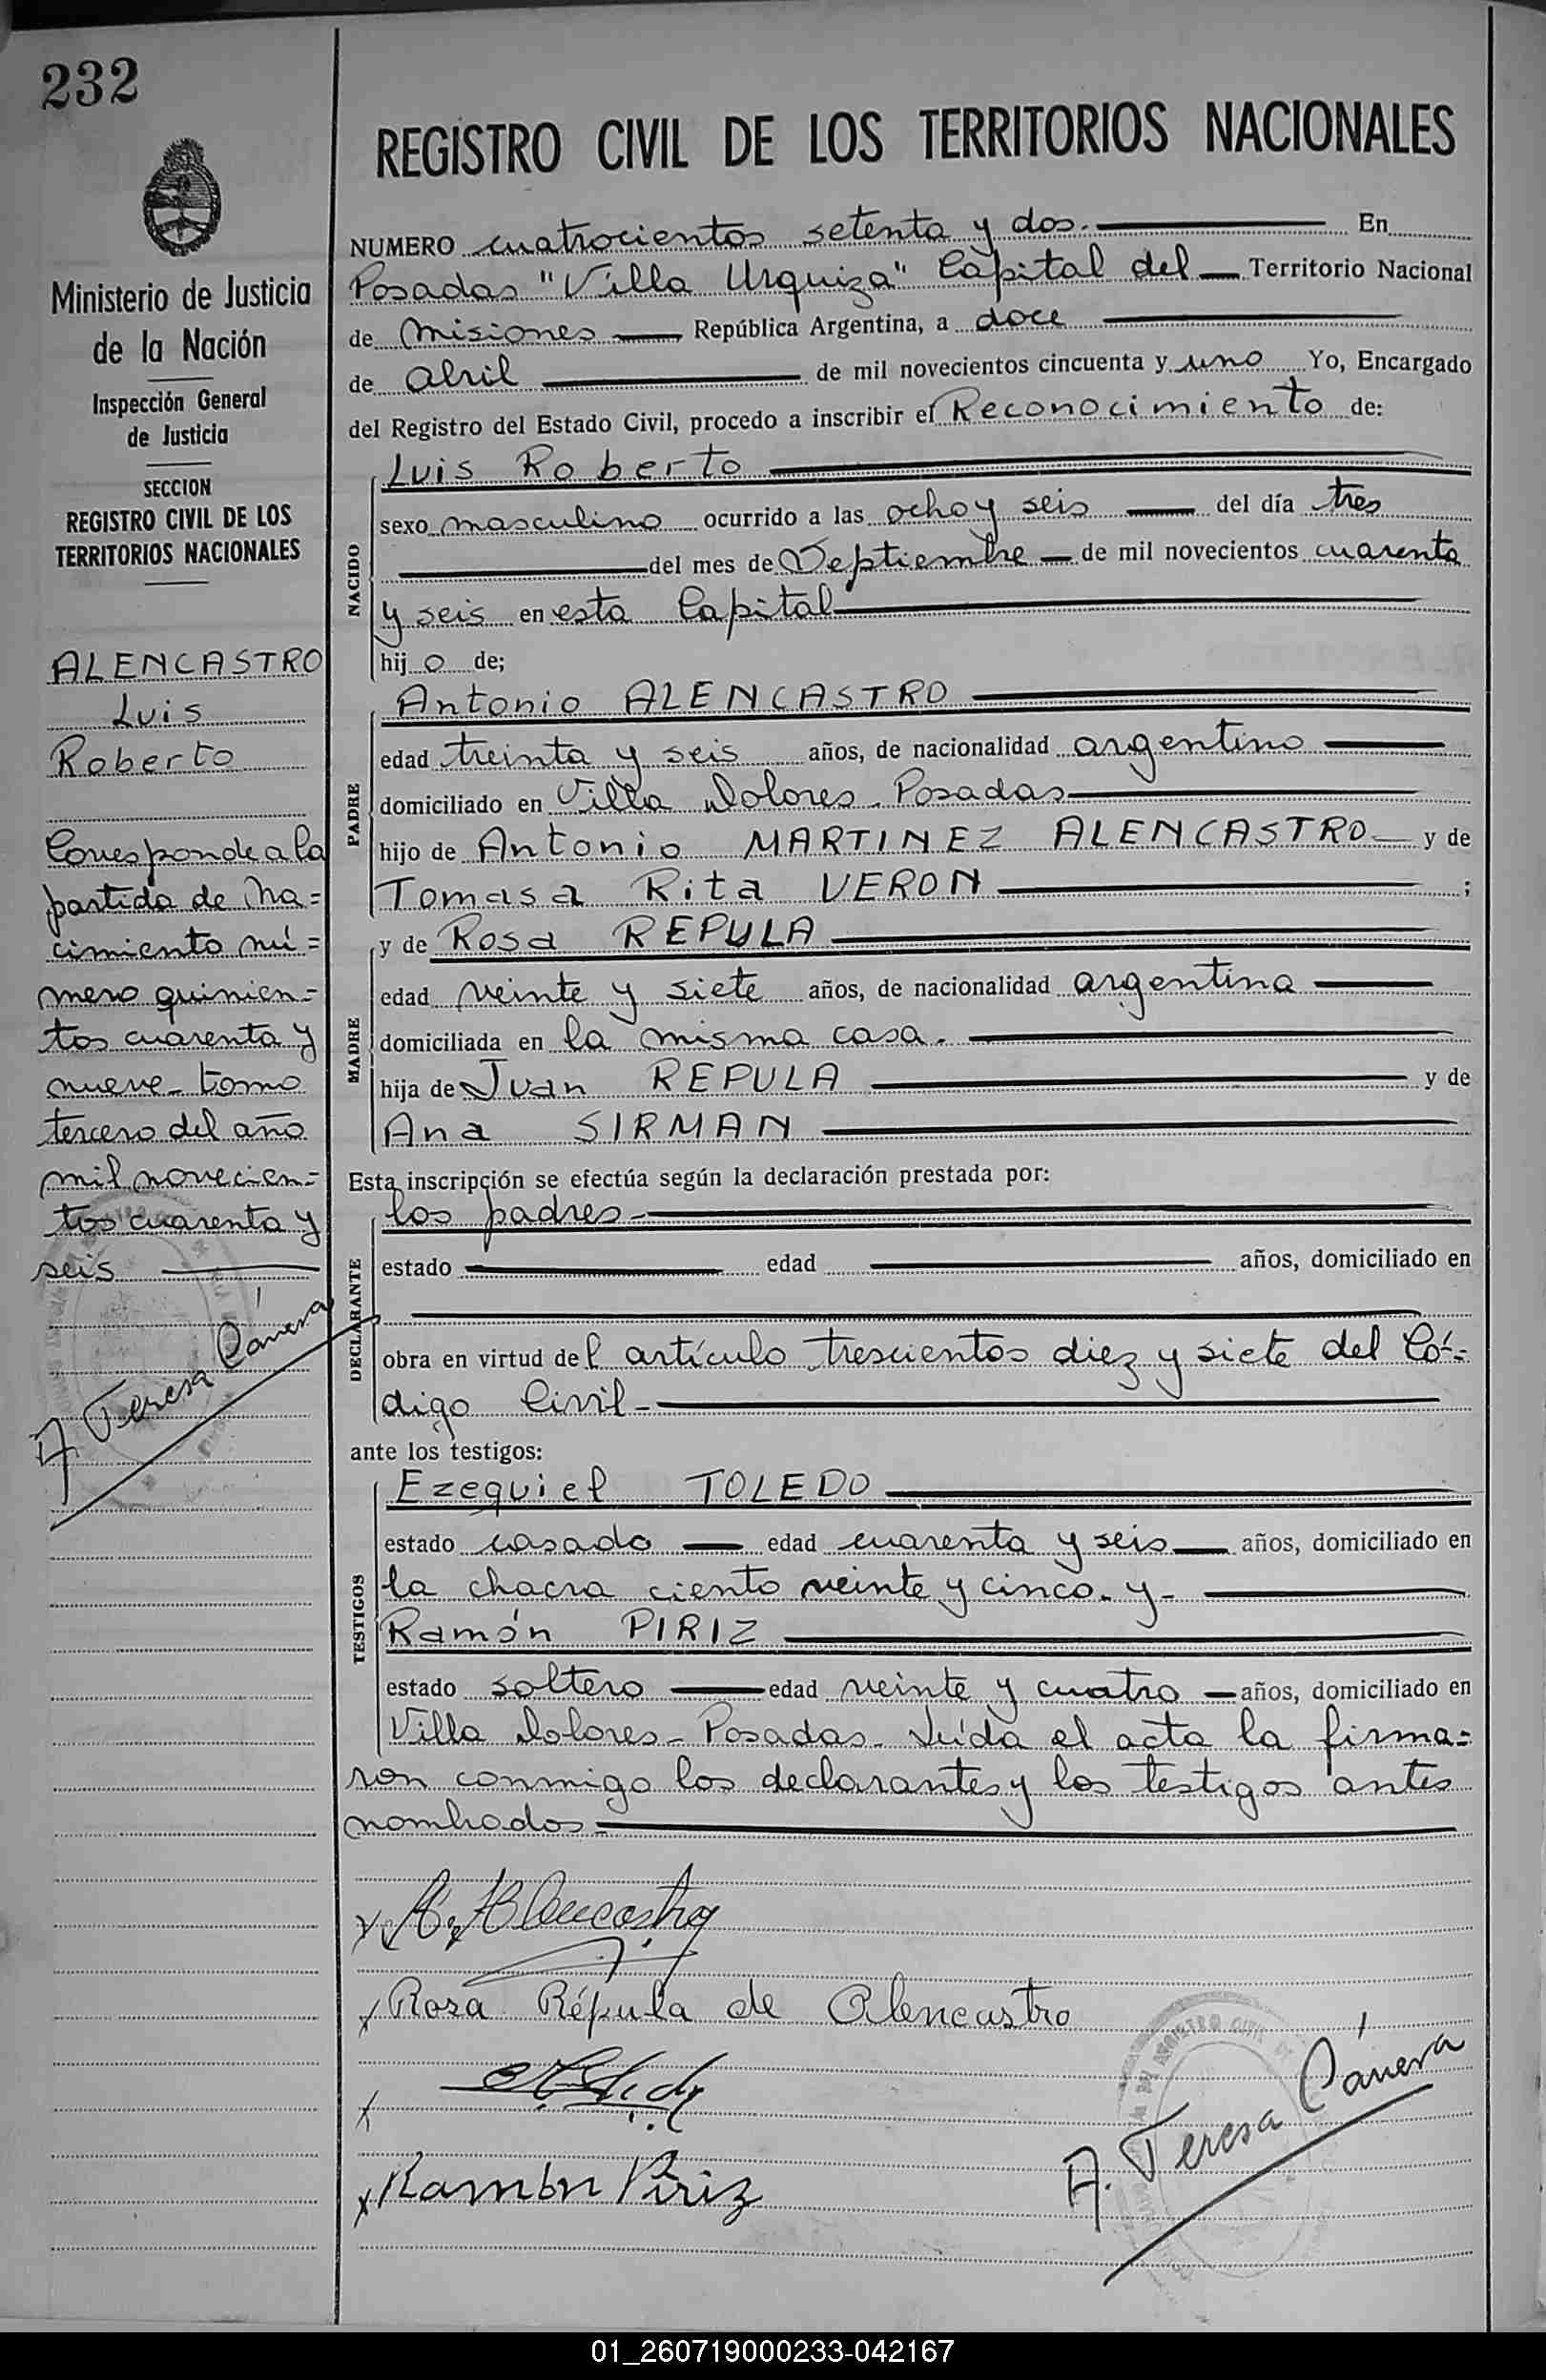 232
REGISTRO CIVIL DE LOS TERRITORIOS NACIONALES
Ministerio de Justicia
de la Nación
Inspección General
de Justicia
SECCION
REGISTRO CIVIL DE LOS
TERRITORIOS NACIONALES
ALENCASTRO
Luis
Roberto
Corresponde a la
partida de na=
cimiento nú=
mero quinien=
tos cuarenta y
nueve - tomo
tercero del año
mil novecien=
tos cuarenta y
seis
A. Teresa Cánera
NUMERO cuatrocientos setenta y dos. En
Posadas "Villa Urquiza" Capital del Territorio Nacional
de Misiones República Argentina, a doce
de abril de mil novecientos cincuenta y uno Yo, Encargado
del Registro del Estado Civil, procedo a inscribir el Reconocimiento de:
NACIDO
Luis Roberto
sexo masculino ocurrido a las ocho y seis del día tres
del mes de Septiembre de mil novecientos cuarenta
y seis en esta Capital
hijo de;
PADRE
Antonio ALENCASTRO
edad treinta y seis años, de nacionalidad argentino
domiciliado en Villa Dolores - Posadas
hijo de Antonio MARTINEZ ALENCASTRO y de
Tomasa Rita VERON ;
MADRE
y de Rosa REPULA
edad veinte y siete años, de nacionalidad argentina
domiciliada en la misma casa.
hija de Juan REPULA y de
Ana SIRMAN
Esta inscripción se efectúa según la declaración prestada por:
DECLARANTE
los padres
estado edad años, domiciliado en
obra en virtud del artículo trescientos diez y siete del Có=
digo Civil
ante los testigos:
TESTIGOS
Ezequiel TOLEDO
estado casado edad cuarenta y seis años, domiciliado en
la chacra ciento veinte y cinco. y
Ramón PIRIZ
estado soltero edad veinte y cuatro años, domiciliado en
Villa Dolores - Posadas. Leída el acta la firma=
ron conmigo los declarantes y los testigos antes
nombrados
A. Alencastro
Rosa Répula de Alencastro
Ramón Piriz
A. Teresa Cánera
01_260719000233-042167